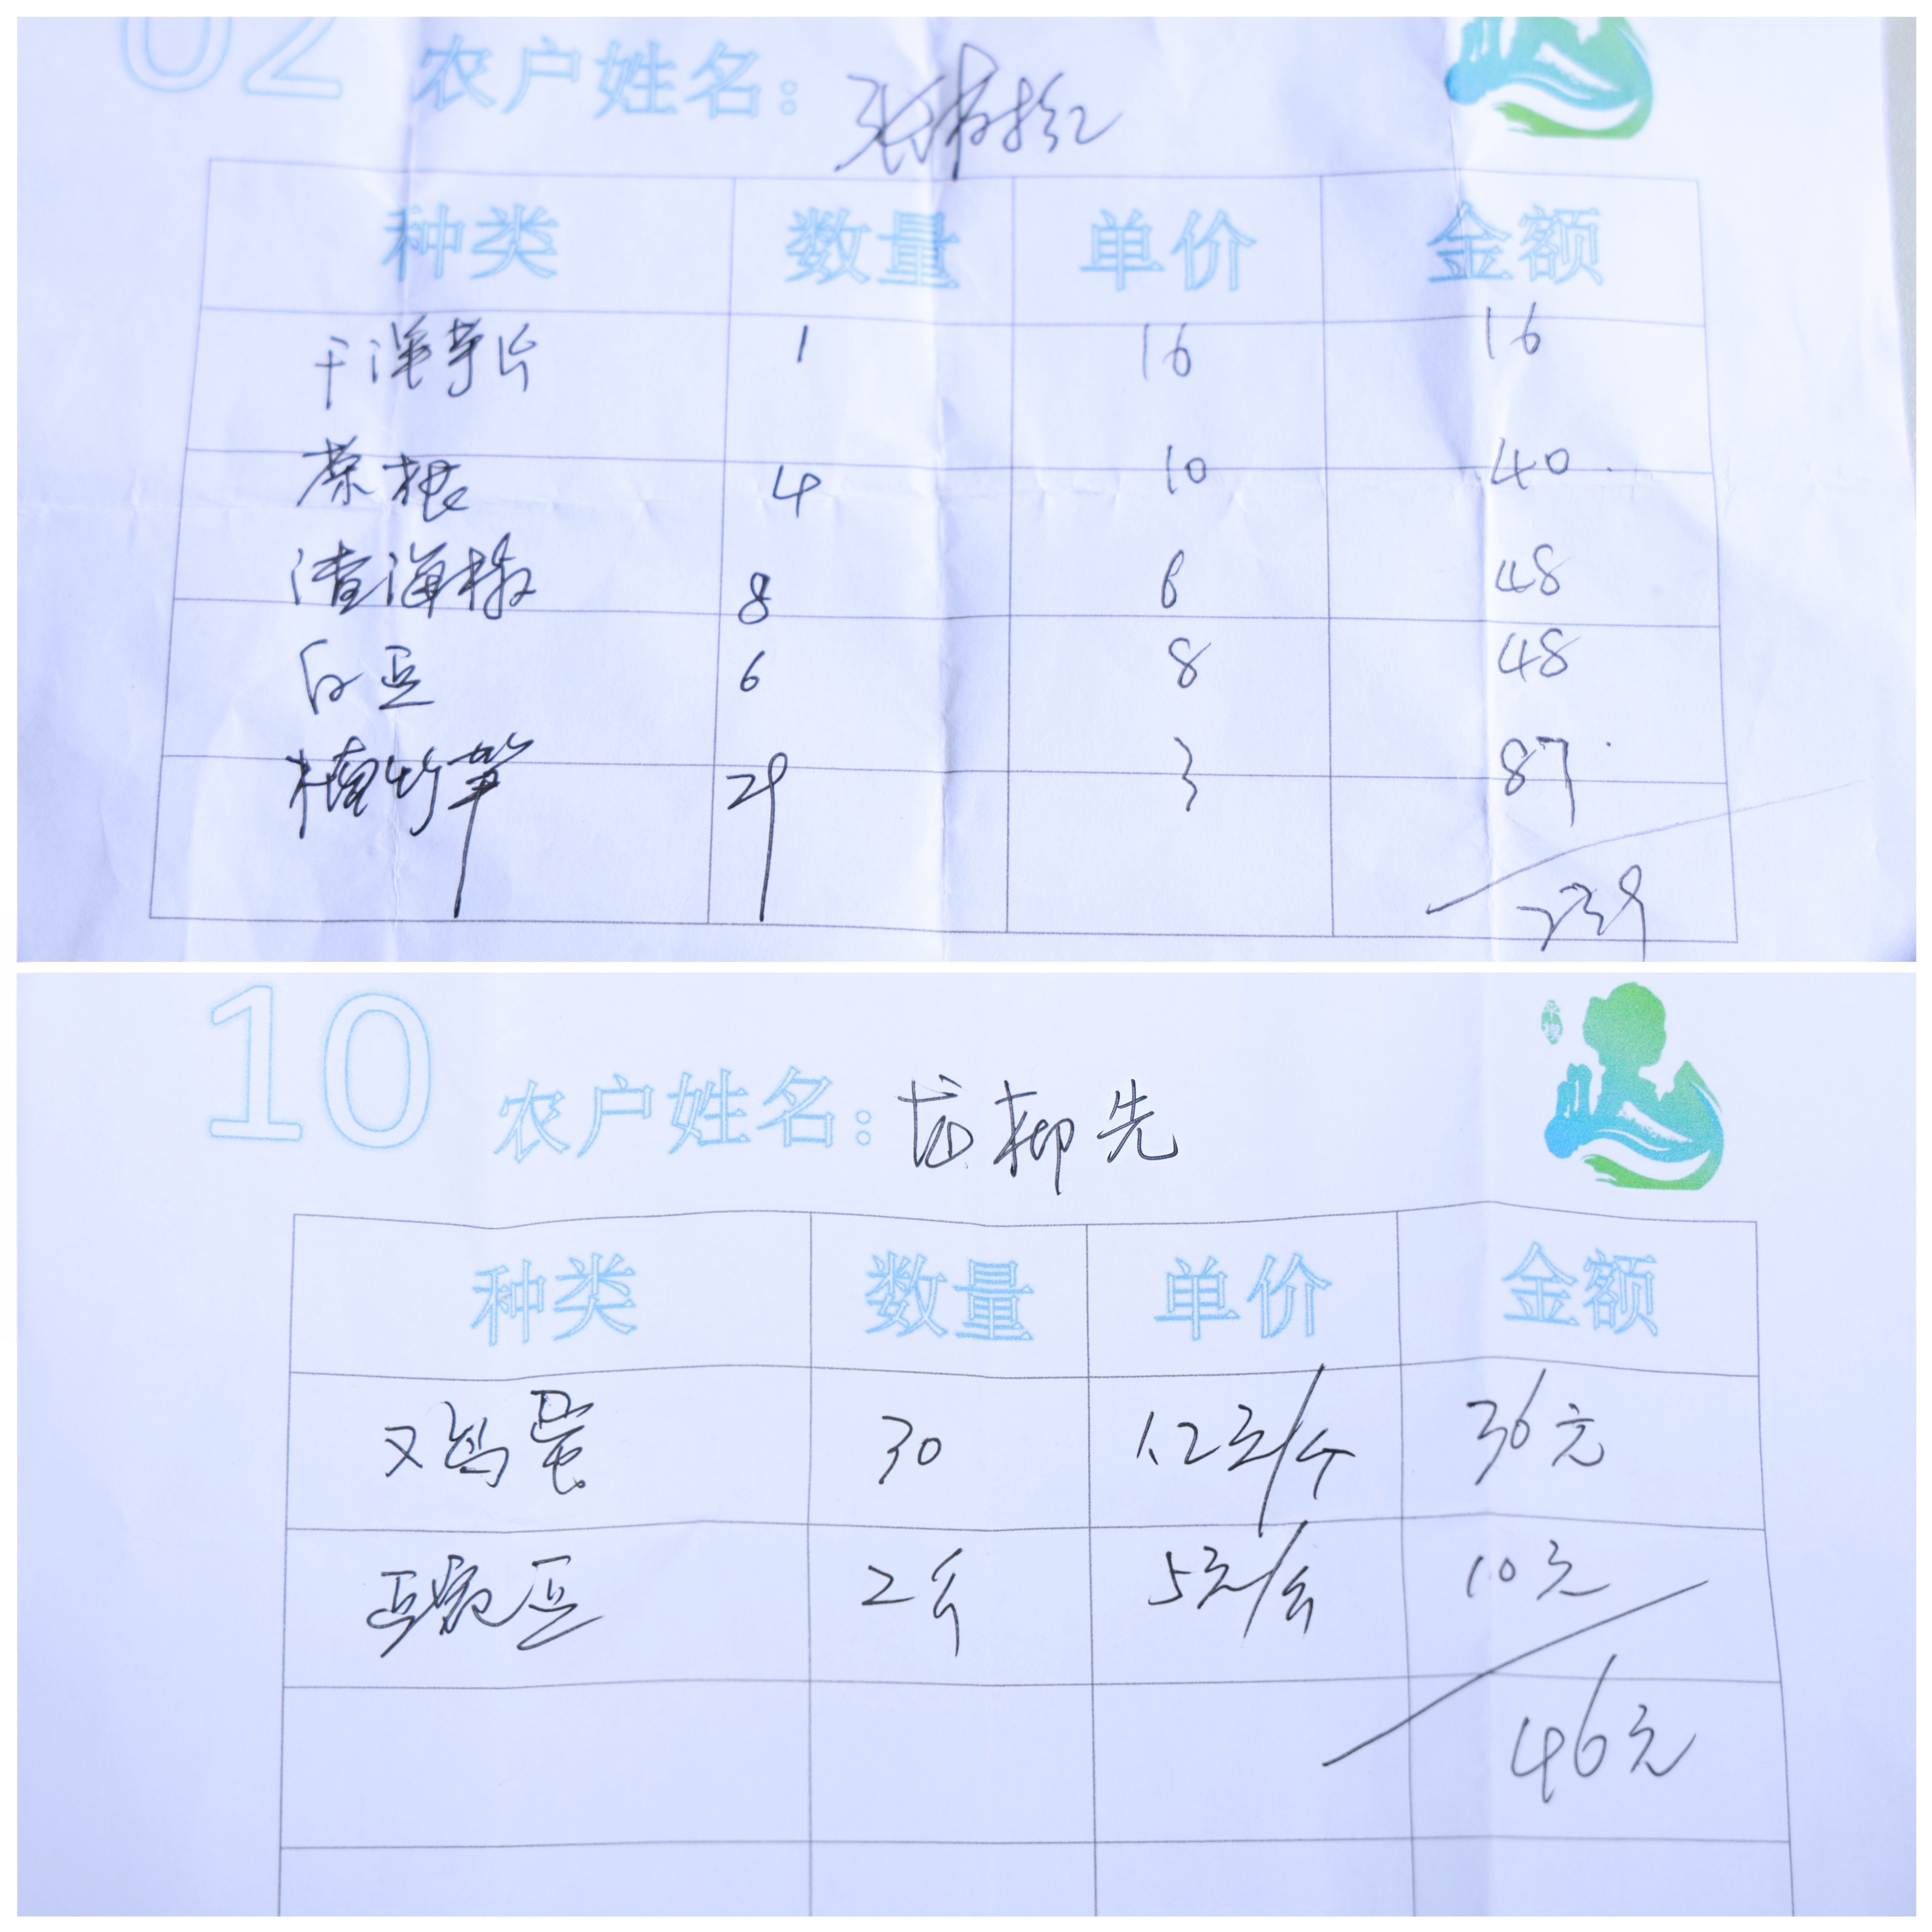 02 农户姓名：
种类 数量 单价 金额
干洋芋片 1 16 16
蕨根 4 10 40
渣海椒 8 6 48
白豆 6 8 48
楠竹笋 29 3 87
239
10 农户姓名：龙柳先
种类 数量 单价 金额
鸡蛋 30 1.2元/个 36元
豌豆 2斤 5元/斤 10元
46元